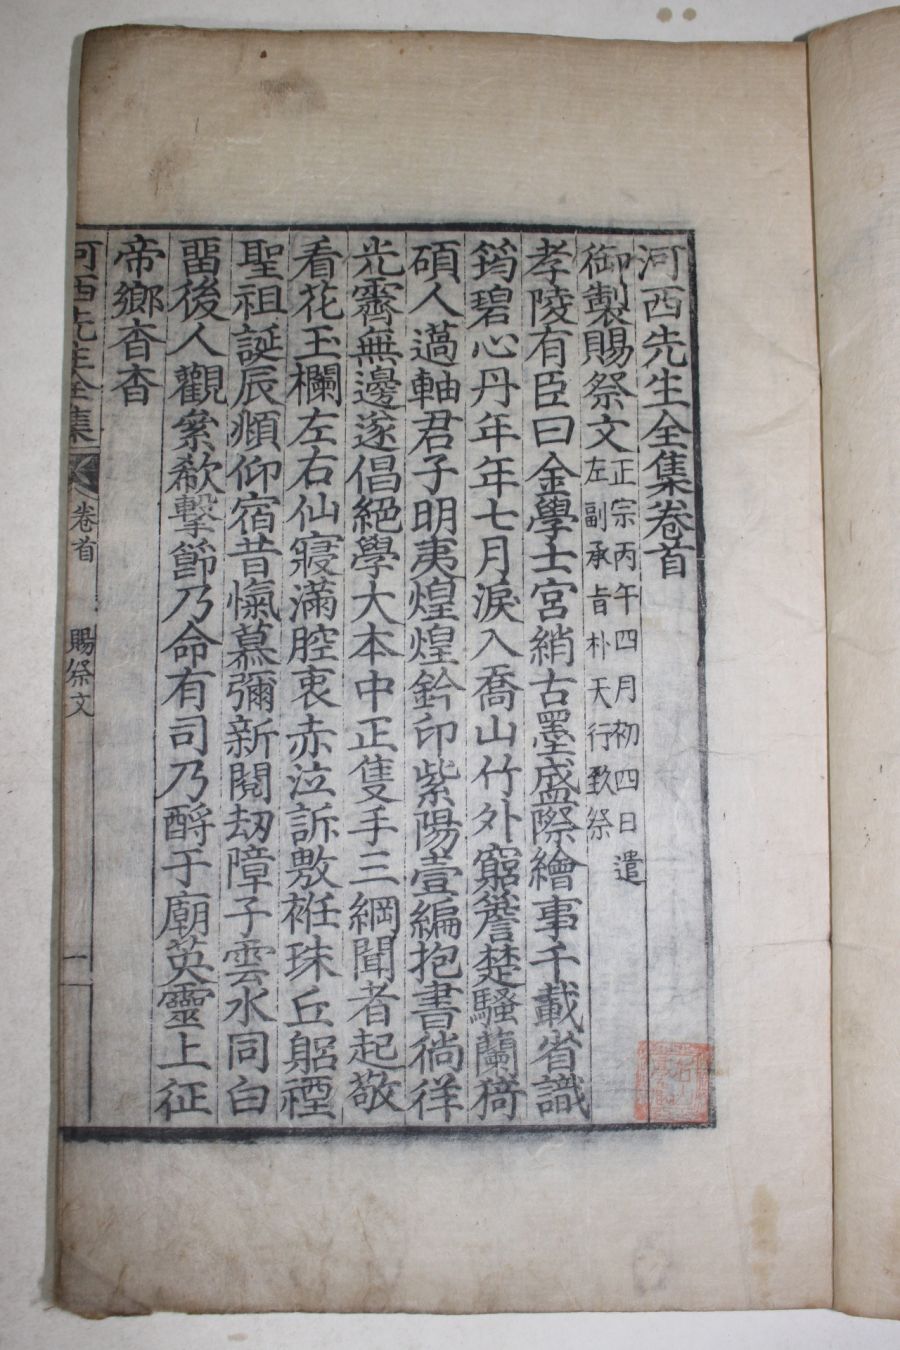 河西先生全集卷首
御製賜祭文 正宗丙午四月初四日遣
左副承旨朴天行致祭
孝陵有臣曰金學士宮綃古墨盛際繪事千載省識
筠碧心丹年年七月淚入喬山竹外窮簷楚騷蘭猗
碩人薖軸君子明夷煌煌鈐印紫陽壹編抱書徜徉
光霽無邊遂倡絕學大本中正隻手三綱聞者起敬
看花玉欄左右仙寢滿腔衷赤泣訴敷衽珠丘躬禋
聖祖誕辰頫仰宿昔愾慕彌新閱劫障子雲水同白
畱後人觀纍欷擊節乃命有司乃酹于廟英靈上征
帝鄉杳杳
河西先生全集
卷首
賜祭文
一